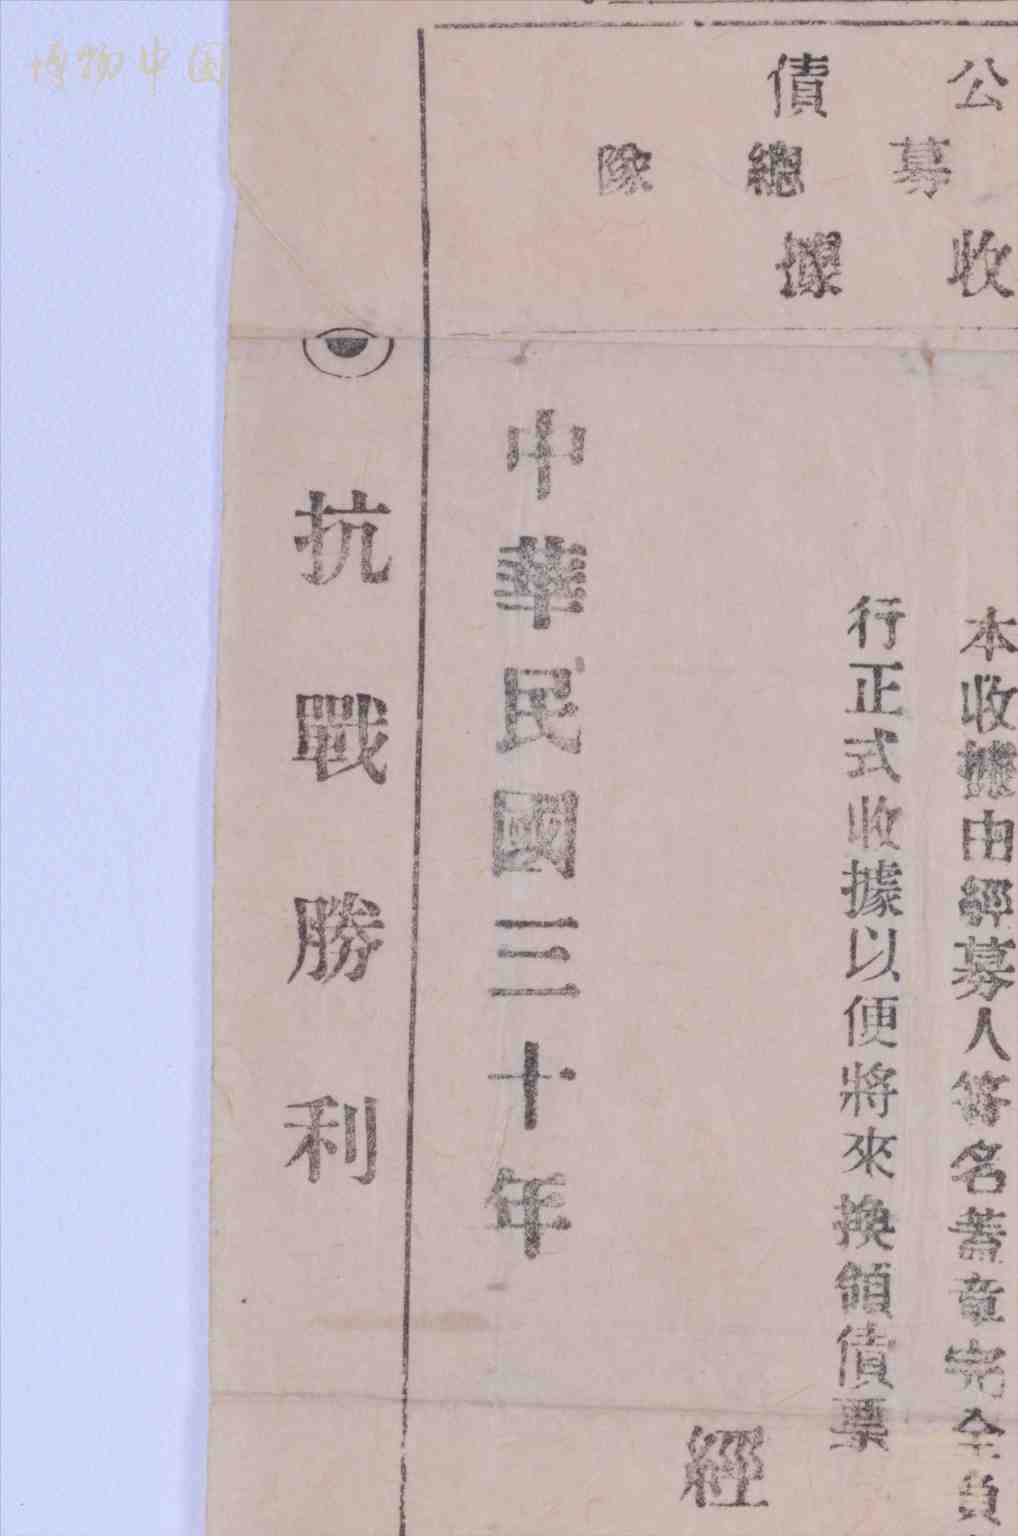 博物中国
債　公
隊　總　募
據　收
本收據由經募人簽名蓋章完全負
行正式收據以便將來換領債票
經
中華民國三十年
抗戰勝利